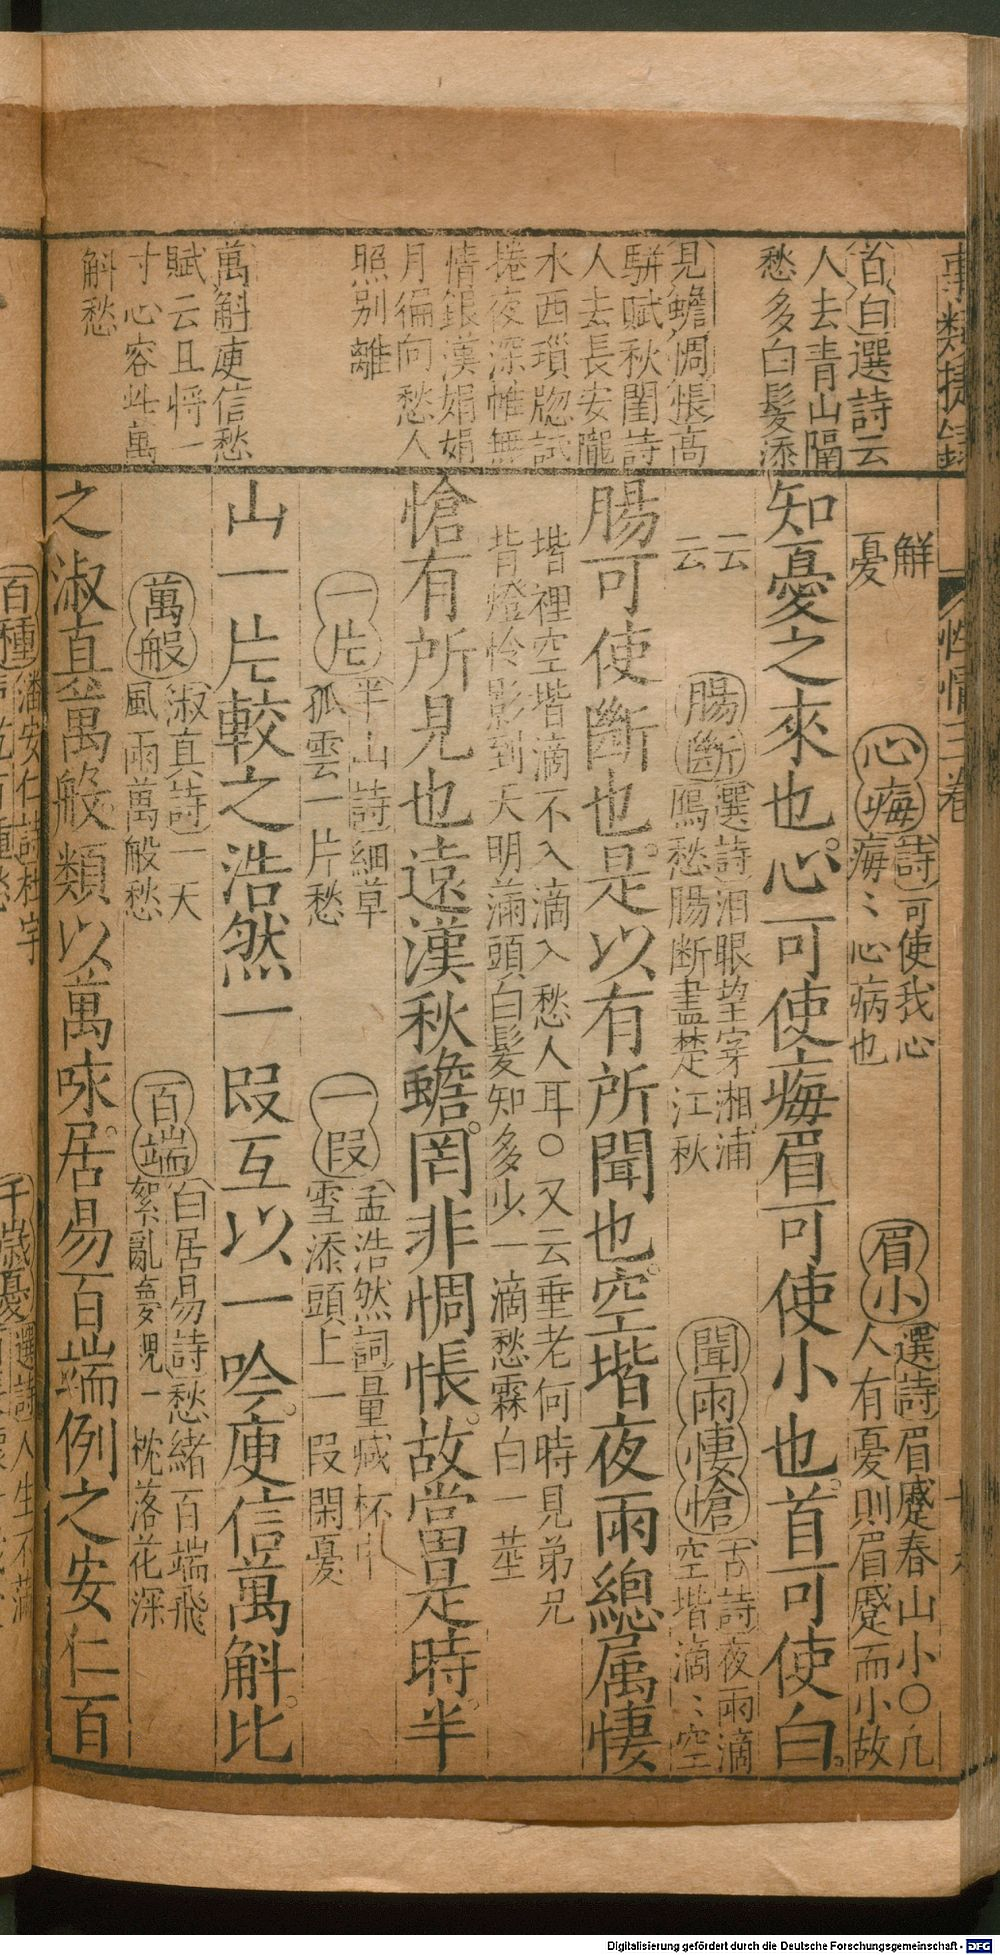 首白選詩云
人去青山隔
愁多白髮添
見蟾惆悵高
駢賦秋閨詩
人去長安隴
水西瑣牕試
捲夜深帷無
情銀漢娟娟
月徧向愁人
照別離
萬斛庾信愁
賦云且將一
寸心容此萬
斛愁
性情三卷
解
憂
心痗
詩可使我心
痗〻心病也
眉小
選詩眉蹙春山小〇凡
人有憂則眉蹙而小故
知憂之來也。心可使痗眉可使小也。首可使白。
云
云
腸斷
選詩泪眼望穿湘浦
鴈愁腸斷盡楚江秋
聞雨悽愴
古詩夜雨滴
空堦滴〻空
腸可使斷也。是以有所聞也。空堦夜雨總属悽
堦裡空堦滴不入滴入愁人耳〇又云垂老何時見弟兄
背燈怜影到天明滿頭白髮知多少一滴愁霖白一莖
愴有所見也遠漢秋蟾。罔非惆悵。故當是時。半
一片
半山詩細草
孤雲一片愁
一叚
孟浩然詞量減杯中
雪添頭上一叚閑憂
山一片較之浩然一叚互以一吟。庾信萬斛。比
萬般
淑真詩一天
風雨萬般愁
百端
白居易詩愁緒百端飛
絮亂夢魂一枕落花深
之淑直萬般。類以萬哌。居易百端例之安仁百
百種
潘安仁詩杜宇
千歲憂
選詩人生不滿
Digitalisierung gefördert durch die Deutsche Forschungsgemeinschaft - DFG